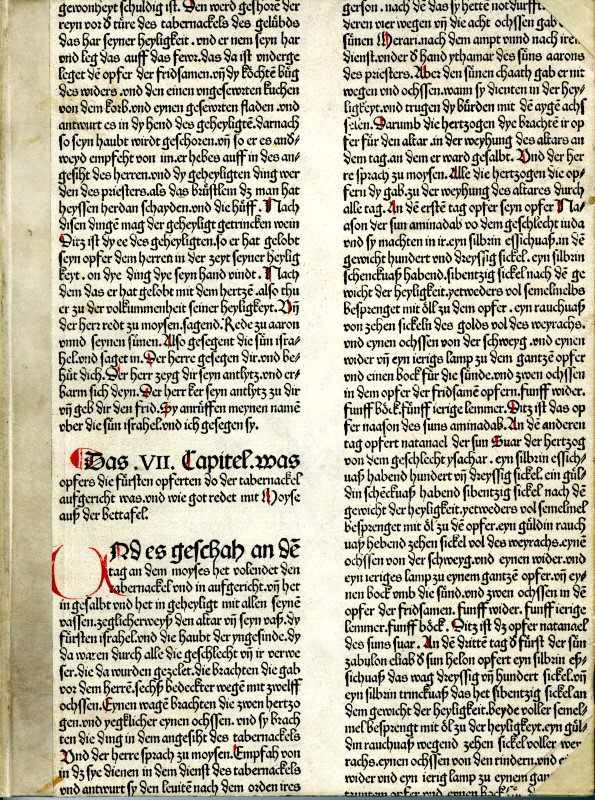 gewonheyt schuldig ist. Den werd geshorẽ der
reyn vor ď türe des tabernackels des gelübds
das har seyner heyligkeit. vnd er nem seyn har
vnd leg das auff das fewr. das da ist vnderge
leget dẽ opfer der fridsamen. vñ dy kochtẽ bũg
des widers. vnd den einen vngeseurten kuchen
von dem korb. vnd eynen geseurten fladen. vnd
antwurt es in dy hend des geheyligtẽ. darnach
so seyn haubt wirdt geschoren. vñ so er es and-
weyd empfcht von im. er hebes auff in des an-
gesiht des herren. vnd dy geheyligten ding wer
den des priesters. als das brüstlein dz man hat
heyssen herdan schayden. vnd die hüff. Nach
disen dingẽ mag der geheyligt getrincken wein
Ditz ist dy ee des geheyligten. so er hat gelobt
seyn opfer dem herren in der zeyt seyner heylig
keyt. on dye ding dye seyn hand vindt. Nach
dem das er hat gelobt mit dem hertzẽ. also thu
er zu der volkummenheit seiner heyligkeyt. Vñ
der herr redt zu moysen. sagend. Rede zu aaron
vnnd seynen sünen. Also gesegent die sün isra-
hel. vnd saget in. Der herre gesegen dir. vnd be-
hüt dich. Der herr zeyg dir seyn antlytz. vnd er-
barm sich deyn. Der herr ker seyn antlytz zu dir
vñ geb dir den frid. Sy anrüffen meynen namẽ
vber die sün israhel. vnd ich gesegen sy.
Das .VII. Capitel. was
opfers die fürsten opferten do der tabernackel
aufgericht was. vnd wie got redet mit Moyse
auß der bettafel.
VNd es geschah an dẽ
tag an dem moyses het volendet den
tabernackel vnd in aufgericht. vñ het
in gesalbt vnd het in geheyligt mit allen seynẽ
vassen. zeglicherweyß den altar vñ seyn vaß. dy
fürsten israhel. vnd die haubt der yngesinde. dy
da waren durch alle die geschlecht vñ ir verwe
ser. die da wurden gezelet. die brachten die gab
vor dem herrẽ. sechß bedeckter wegẽ mit zwelff
ochssen. Eynen wagẽ brachten die zwen hertzo
gen. vnd yegklicher eynen ochssen. vnd sy brach
ten die ding in dem angesiht des tabernackels
Vnd der herre sprach zu moysen. Empfah von
in dz sye dienen in dem dienst des tabernackels
vnd antwurt sy den leuitẽ nach dem orden ires
gerson. nach dẽ das sy hettẽ notdurfft.
deren vier wegen vñ die acht ochssen gab
sünen Merari. nach dem ampt vnnd nach irem
dienst. vnder ď hand ythamar des süns aarons
des priesters. Aber den sünen chaath gab er nit
wegen vnd ochssen. wann sy dienten in der hey-
ligkeyt. vnd trugen dy bürden mit dẽ aygẽ achs
selen. Darumb die hertzogen dye brachtẽ ir op
fer für den altar. in der weyhung des altars an
dem tag. an dem er ward gesalbt. Vnd der her
re sprach zu moysen. Alle die hertzogen die op-
fern dy gab. zu der weyhung des altares durch
alle tag. An dẽ erstẽ tag opfer seyn opfer Na-
ason der sun aminadab vo dem geschlecht iuda
vnd sy machten in ir. eyn silbrin essichuaß. in dẽ
gewicht hundert vnd dreyssig sickel. eyn silbrin
schenckuaß habend. sibentzig sickel nach dẽ ge
wicht der heyligkeit. yetweders vol semelmelbs
besprenget mit öll zu dem opfer. eyn rauchuaß
von zehen sickeln des golds vol des weyrachs.
vnd eynen ochssen von der schweyg. vnd eynen
wider vñ eyn ierigs lamp zu dem gantzẽ opfer
vnd einen bock für die sünde. vnd zwen ochssen
in dem opfer der fridsamẽ opfern. funff wider.
funff böck. fünff ierige lemmer. Ditz ist das op
fer naason des suns aminadab. An dẽ anderen
tag opfert natanael der sun Suar der hertzog
von dem geschlecht ysachar. eyn silbrin essich-
uaß habend hundert vñ dreyssig sickel. ein gül-
din schẽckuaß habend sibentzig sickel nach dẽ
gewicht der heyligkeit. yetweders vol semelmel
besprenget mit öl zu dẽ opfer. eyn güldin rauch
uaß hebend zehen sickel vol des weyrachs. eynẽ
ochssen von der schweyg. vnd eynen wider. vnd
eyn ieriges lamp zu eynem gantzẽ opfer. vñ ey-
nen bock vmb die sünd. vnd zwen ochssen in dẽ
opfer der fridsamen. funff wider. funff ierige
lemmer. funff böck. Ditz ist dz opfer natanael
des suns suar. An dẽ drittẽ tag ď fürst der sün
zabulon eliab ď sun helon opfert eyn silbrin eß-
sichuaß das wag dreyssig vñ hundert sickel. vñ
eyn silbrin trinckuaß das het sibentzig sickel an
dem gewicht der heyligkeit. beyde voller semel-
mel besprengt mit öl zu der heyligkeyt. eyn gül-
din rauchuaß wegend zehen sickel voller wey-
rachs. eynen ochssen von den rindern. vnd ei
wider vnd eyn ierig lamp zu eynem gan